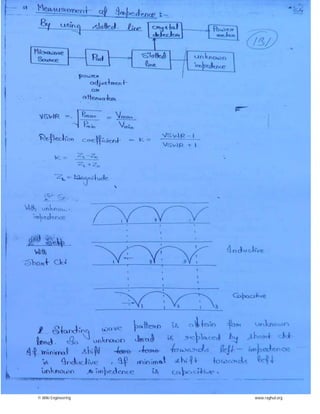 Measurement of Impedance :-
By using slotted line
crystal detector
Power meter
131
Microwave Source
Pad
Slotted line
unknown impedance
power adjustment or attenuator
VSWR = √ Pmax / Pmin = Vmax / Vmin
Reflection coefficient = K = VSWR - 1 / VSWR + 1
K = ZL - Z0 / ZL + Z0
ZL = Magnitude
With unknown impedance
With Short Ckt
Inductive
Capacitive
1. Standing wave pattern is obtain for unknown
load. So unknown load is replaced by short ckt
If minimal shift towards left impedance
is Inductive. If minimal shift towards left
unknown impedence is capacitive.
© Bilbi Engineering
www.raghul.org